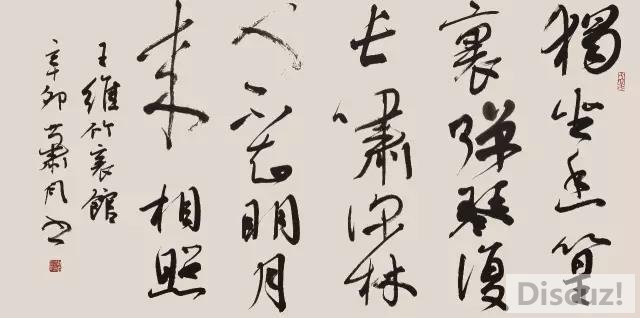 獨坐幽篁
裏彈琴復
長嘯深林
人不知明月
来相照
王維竹裏館
辛卯
Discuz!